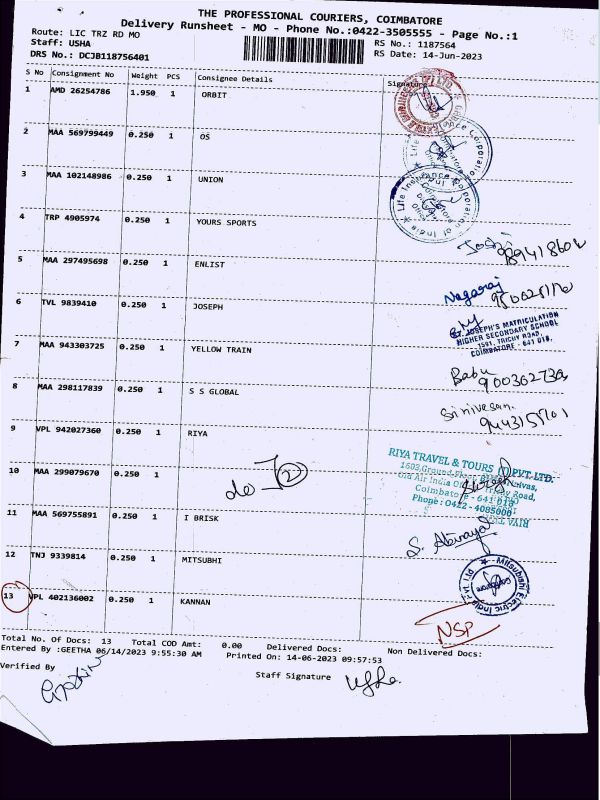 THE PROFESSIONAL COURIERS, COIMBATORE
Delivery Runsheet - MO - Phone No.:0422-3505555 - Page No.:1
Route: LIC TRZ RD MO
RS No.: 1187564
Staff: USHA
RS Date: 14-Jun-2023
DRS No.: DCJB118756401
S No Consignment No Weight PCS Consignee Details Signature
1 AMD 26254786 1.950 1 ORBIT
2 MAA 569799449 0.250 1 OS
3 MAA 102148986 0.250 1 UNION
Life Insurance Corporation of India
4 TRP 4905974 0.250 1 YOURS SPORTS
5 MAA 297495698 0.250 1 ENLIST
Nagaraj
6 TVL 9839410 0.250 1 JOSEPH
ST. JOSEPH'S MATRICULATION
HIGHER SECONDARY SCHOOL
1591, TRICHY ROAD,
COIMBATORE - 641 018.
7 MAA 943303725 0.250 1 YELLOW TRAIN
Babu
8 MAA 298117839 0.250 1 S S GLOBAL
Srinivesan.
9 VPL 942027360 0.250 1 RIYA
RIYA TRAVEL & TOURS (I) PVT. LTD.
Coimbatore - 641 018
Phone : 0422 - 4085000
10 MAA 299079670 0.250 1
do 2
11 MAA 569755891 0.250 1 I BRISK
12 TNJ 9339814 0.250 1 MITSUBHI
Mitsubishi Electric India Pvt. Ltd
13 VPL 402136002 0.250 1 KANNAN
NSP
Total No. Of Docs: 13 Total COD Amt: 0.00 Delivered Docs: Non Delivered Docs:
Entered By :GEETHA 06/14/2023 9:55:30 AM Printed On: 14-06-2023 09:57:53
Verified By
Staff Signature
Usha